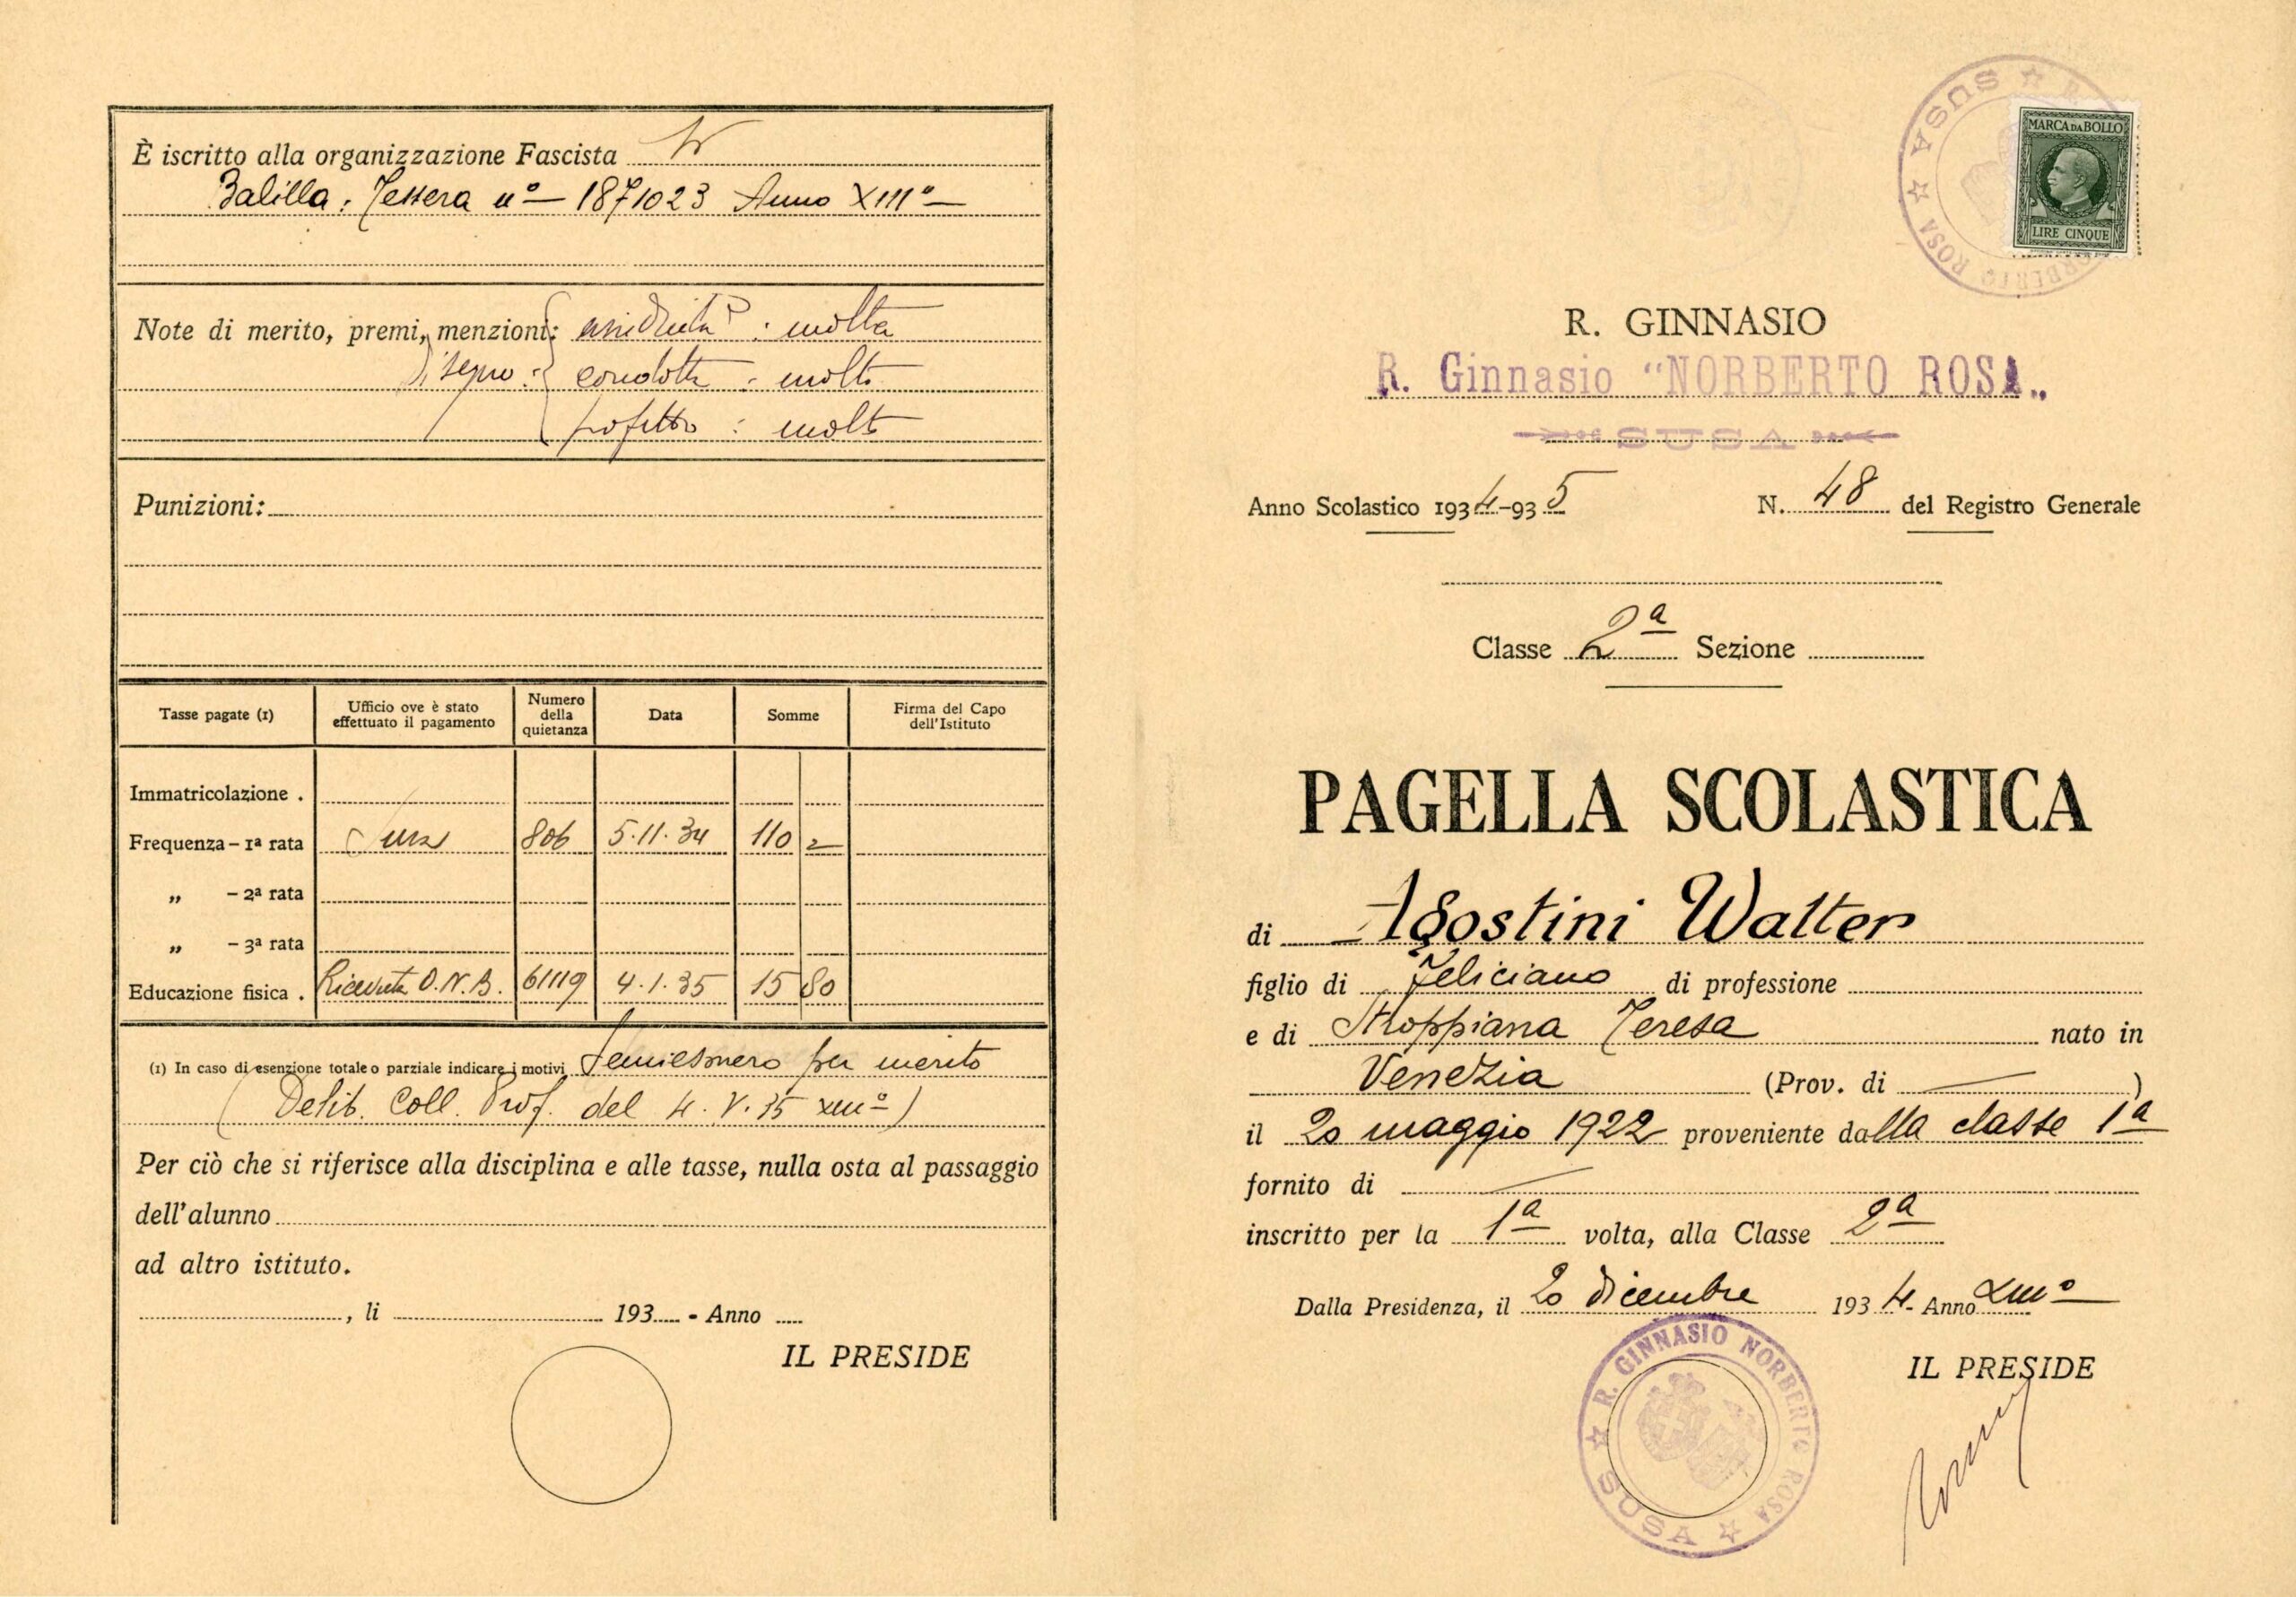 È iscritto alla organizzazione Fascista
Balilla. Tessera nº 1871023 Anno XIIIº
Note di merito, premi, menzioni: assiduità : molta
Disegno : condotta : molto
profitto : molto
Punizioni:
Tasse pagate (1) Ufficio ove è stato effettuato il pagamento Numero della quietanza Data Somme Firma del Capo dell'Istituto
Immatricolazione .
Frequenza - 1ª rata Susa 806 5.11.34 110
„ - 2ª rata
„ - 3ª rata
Educazione fisica . Ricevuta O.N.B. 61119 4.1.35 15 80
(1) In caso di esenzione totale o parziale indicare i motivi Semiesonero per merito
(Delib. Coll. Prof. del 4.V.35 XIIIº)
Per ciò che si riferisce alla disciplina e alle tasse, nulla osta al passaggio
dell'alunno
ad altro istituto.
, li 193 - Anno
IL PRESIDE
SUSA
R.
NORBERTO ROSA
MARCA DA BOLLO
LIRE CINQUE
R. GINNASIO
R. Ginnasio "NORBERTO ROSA„
SUSA
Anno Scolastico 1934-935 N. 48 del Registro Generale
Classe 2ª Sezione
PAGELLA SCOLASTICA
di Agostini Walter
figlio di Feliciano di professione
e di Stroppiana Teresa nato in
Venezia (Prov. di — )
il 20 maggio 1922 proveniente dalla classe 1ª
fornito di —
inscritto per la 1ª volta, alla Classe 2ª
Dalla Presidenza, il 20 dicembre 1934 - Anno XIIIº
IL PRESIDE
R. GINNASIO NORBERTO ROSA
SUSA